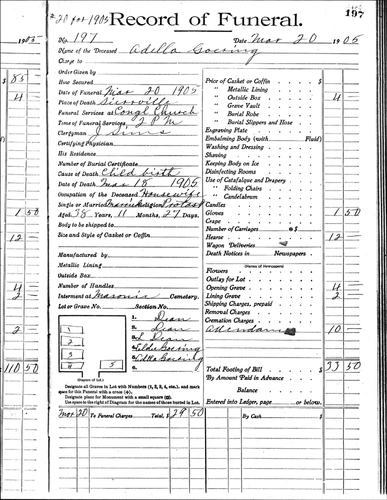 #20 for 1905
Record of Funeral. 197
No. 197 Date Mar 20 1905
Name of the Deceased Adella Goering
Charge to
Order Given by
How Secured
Date of Funeral Mar 20 1905
Place of Death Sierraville
Funeral Services at Congl Church
Time of Funeral Services 2 PM
Clergyman J Sims
Certifying Physician
His Residence
Number of Burial Certificate
Cause of Death Child birth
Date of Death Mar 18 1905
Occupation of the Deceased Housewife
Single or Married Married Religion Protast
Aged 38 Years, 11 Months, 27 Days.
Body to be shipped to
Size and Style of Casket or Coffin
Manufactured by
Metallic Lining
Outside Box
Number of Handles
Interment at Masonic Cemetery.
Lot or Grave No. Section No.
1. Dean
2. Dean
3. L Dean
4. Elda Goering
5. Adella Goering
6.
1
2
3
4
5
(Diagram of Lot.)
Designate all Graves in Lot with Numbers (1, 2, 3, 4, etc.), and mark
space for this Funeral with a cross (x).
Designate place for Monument with a small square (□).
Use space to right of Diagram for the names of those buried in Lot.
Price of Casket or Coffin $
" Metallic Lining
" Outside Box 4
" Grave Vault
" Burial Robe
" Burial Slippers and Hose
Engraving Plate
Embalming Body (with Fluid)
Washing and Dressing
Shaving
Keeping Body on Ice
Disinfecting Rooms
Use of Catafalque and Drapery
" Folding Chairs
" Candelabrum
Candles
Gloves 1 50
Crape
Number of Carriages @ $
Hearse 12
Wagon Deliveries
Death Notices in Newspapers
(Names of Newspapers)
Flowers
Outlay for Lot
Opening Grave 4
Lining Grave 2
Shipping Charges, prepaid
Removal Charges
Cremation Charges
Attendance 10
Total Footing of Bill $ 33 50
By Amount Paid in Advance
Balance
Entered into Ledger, page or below.
Mar 20 To Funeral Charges Total, $ 29 50 By Cash $
85
4
1 50
12
4
2
2
110 50